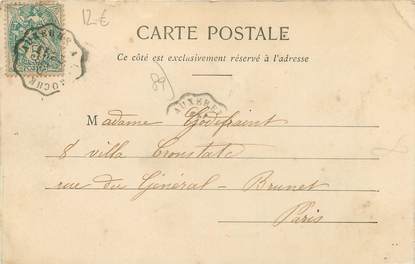 12€
CARTE POSTALE
Ce côté est exclusivement réservé à l'adresse
89
AUXERRE
Madame Godefraint
8 villa Cronstadt
rue du Général - Brunet
Paris